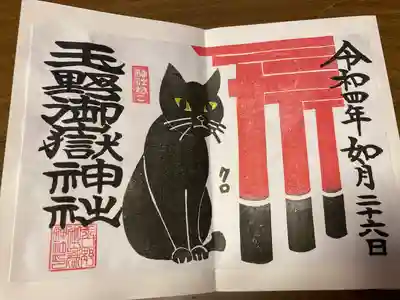 令和四年 如月二十六日
クロ
神社ねこ
玉野御嶽神社